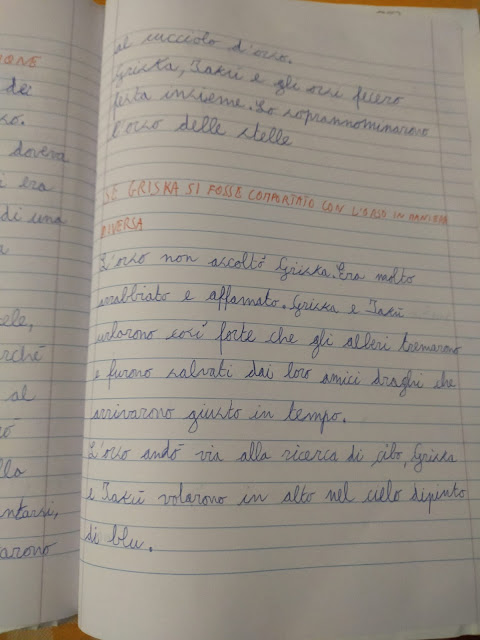 IONE
de
so.
doveva
i era
di una
a
ele,
rché
al
ro
lla
ntarsi,
arono
al cucciolo d'orso.
Griska, Takū e gli orsi fecero
festa insieme. Lo soprannominarono
l'orso delle stelle
SE GRISKA SI FOSSE COMPORTATO CON L'ORSO IN MANIERA
DIVERSA
L'orso non ascoltó Griska. Era molto
arrabbiato e affamato. Griska e Takū
urlarono cosí forte che gli alberi tremarono
e furono salvati dai loro amici draghi che
arrivarono giusto in tempo.
L'orso andó via alla ricerca di cibo, Griska
e Takū volarono in alto nel cielo dipinto
di blu.